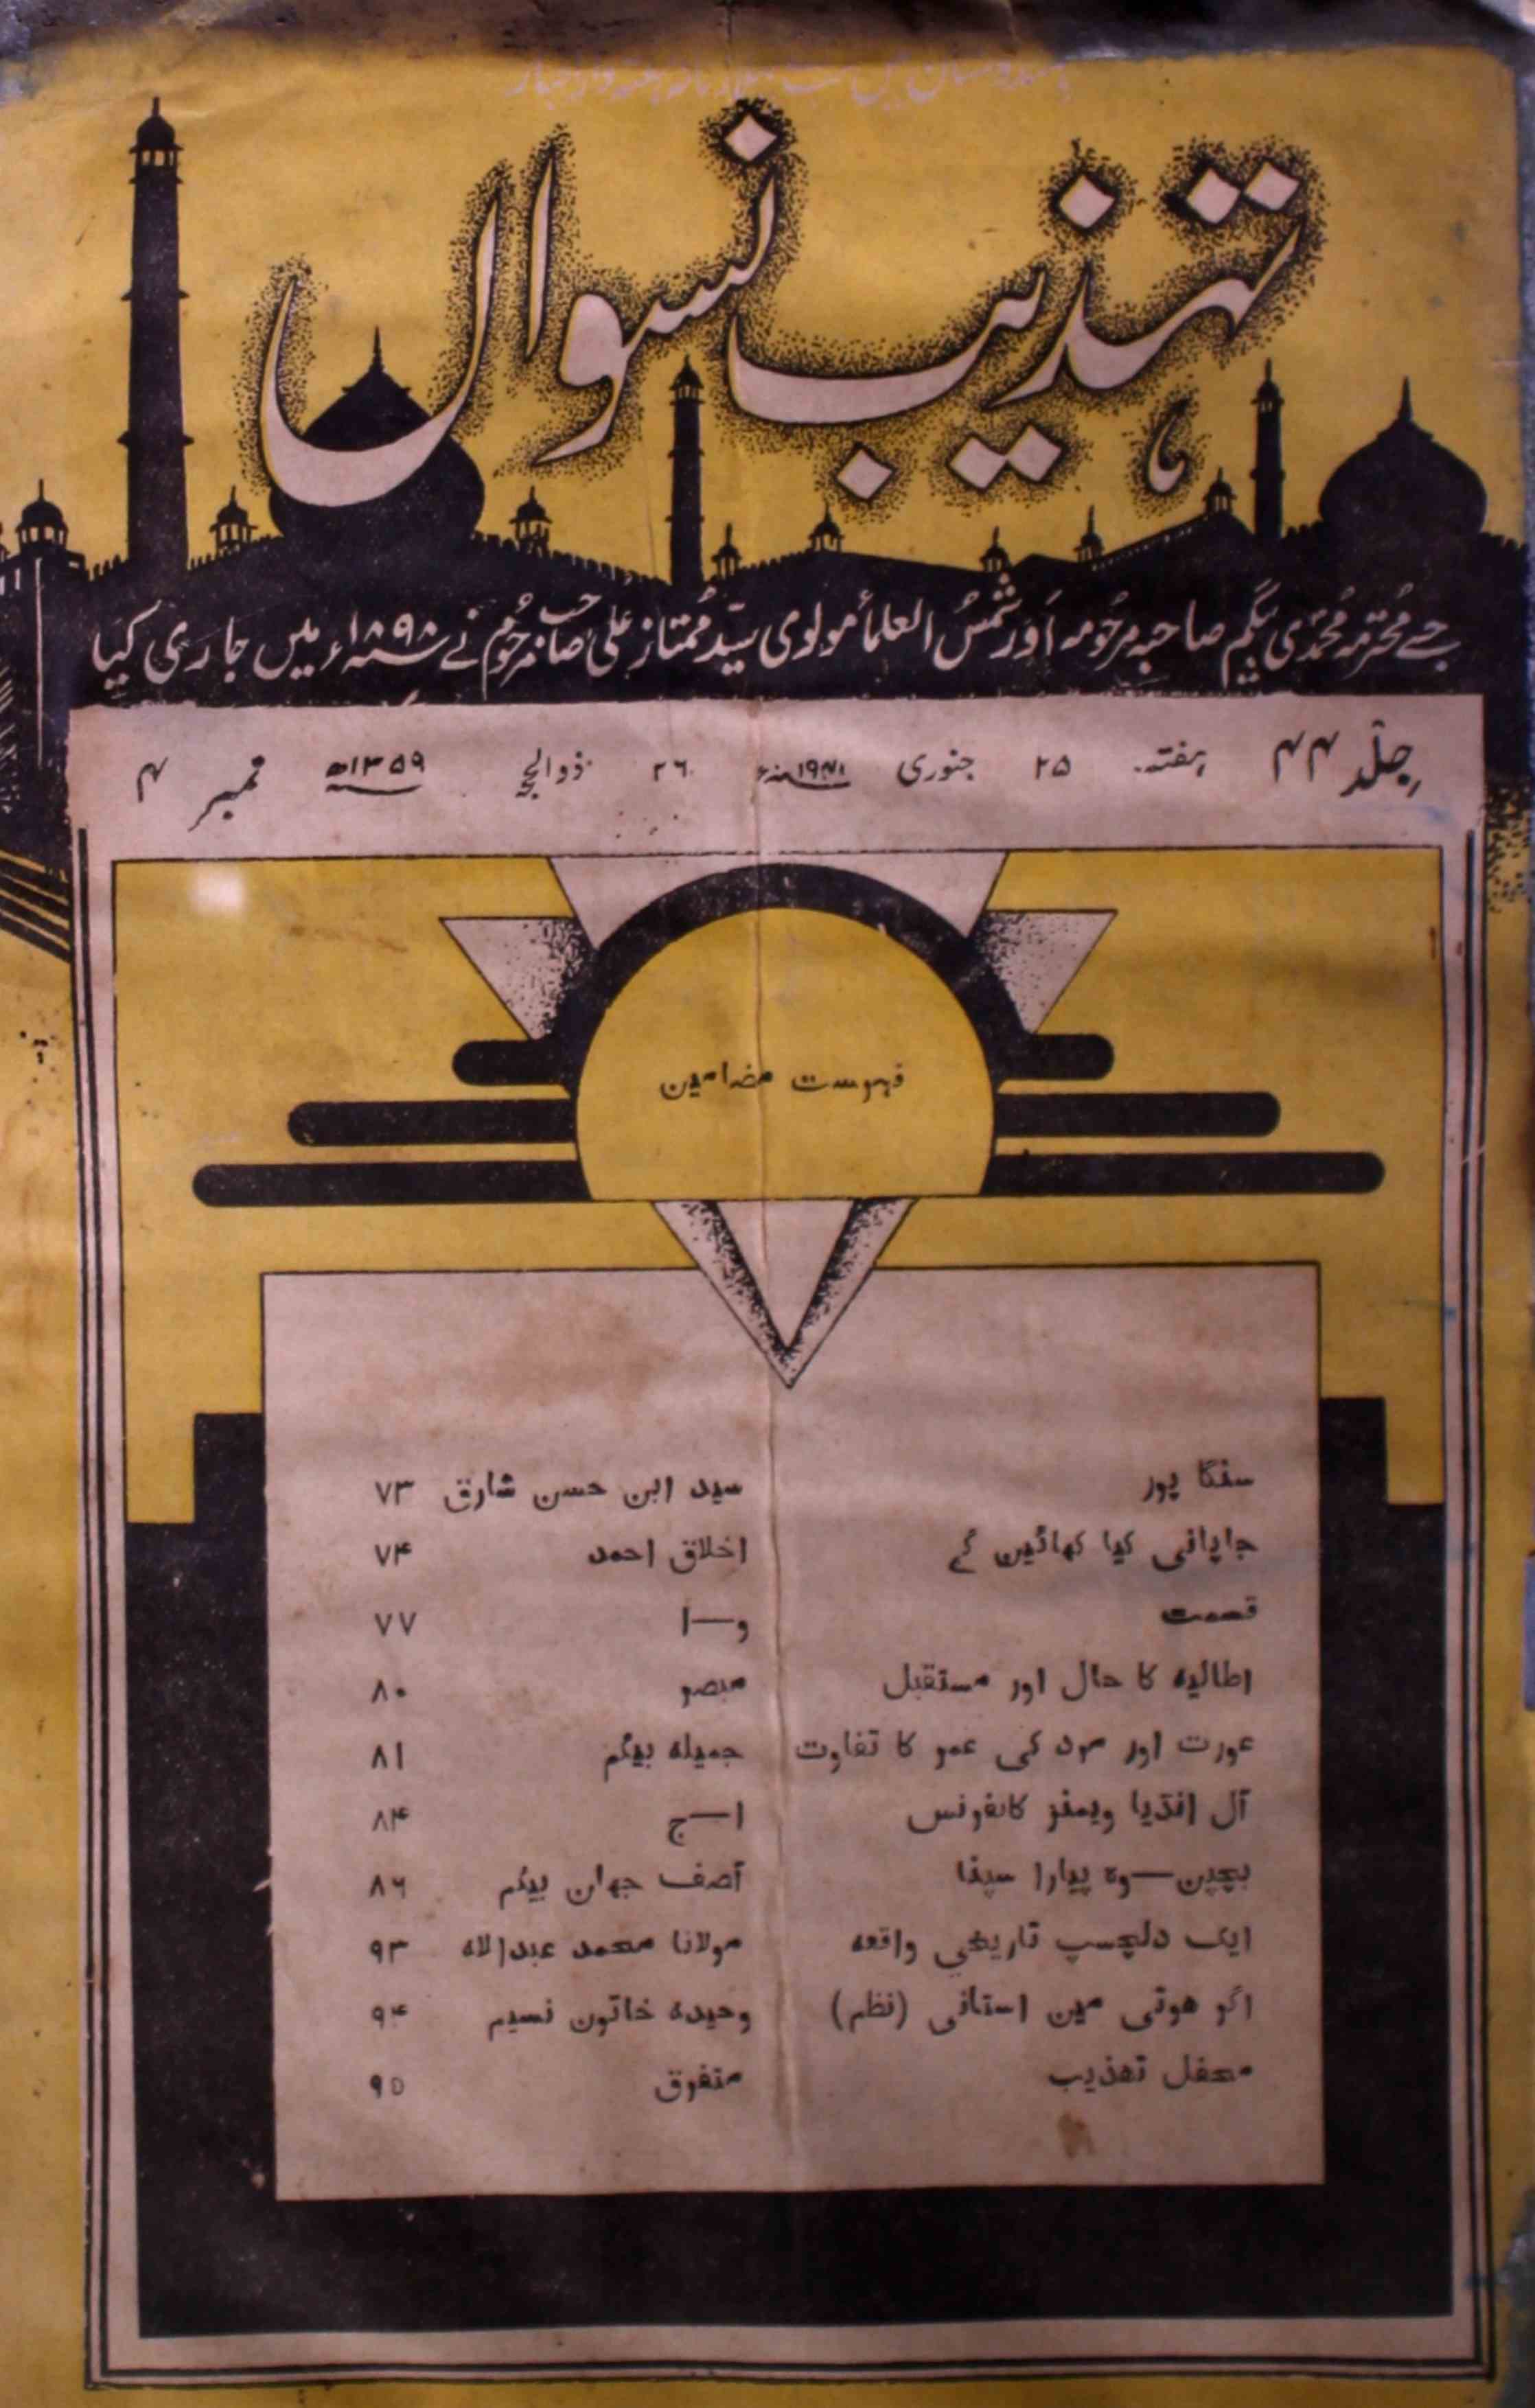 ہندوستان میں سب سے پہلا زنانہ ہفتہ وار اخبار
تہذیب نسواں
جسے محترمہ محمدی بیگم صاحبہ مرحومہ اور شمس العلماً مولوی سید ممتاز علی صاحب مرحوم نے ۱۸۹۸ء میں جاری کیا
جلد ۴۴ ہفتہ ۲۵ جنوری ۱۹۴۱ء ۲۶ ذوالحجہ ۱۳۵۹ھ نمبر ۴
فہرست مضامین
سنگا پور سید ابن حسن شارق ۷۳
جاپانی کیا کھائیں گے اخلاق احمد ۷۴
قسمت و—ا ۷۷
اطالیہ کا حال اور مستقبل مبصر ۸۰
عورت اور مرد کی عمر کا تفاوت جمیلہ بیگم ۸۱
آل انڈیا ویمنز کانفرنس ا—ج ۸۴
بچپن—وہ پیارا سپنا آصف جہاں بیگم ۸۶
ایک دلچسپ تاریخی واقعہ مولانا محمد عبدالله ۹۳
اگر ہوتی میں استانی (نظم) وحیدہ خاتون نسیم ۹۴
محفل تہذیب متفرق ۹۵